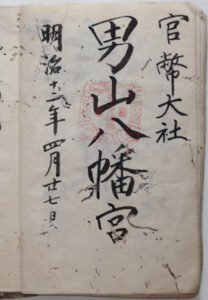 官幣大社
男山八幡宮
明治十二年四月廿七日